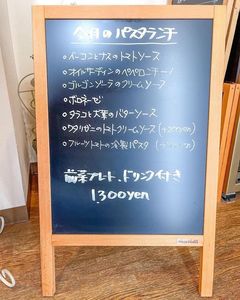 今月のパスタランチ
ベーコンとナスのトマトソース
オイルサーディンのペペロンチーノ
ゴルゴンゾーラのクリームソース
ボロネーゼ
タラコと大葉のバターソース
ワタリガニのトマトクリームソース (+200yen)
フルーツトマトの冷製パスタ
前菜プレート、ドリンク付き
1300yen